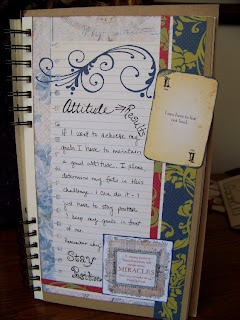 Attitude → Results
If I want to achieve my
goals I have to maintain
a good attitude. I alone
determine my fate in this
challenge. I can do it - I
just have to stay positive
& keep my goals in front
of me.
Remember why
Stay
Positive
I am here to live
out loud.
MIRACLES